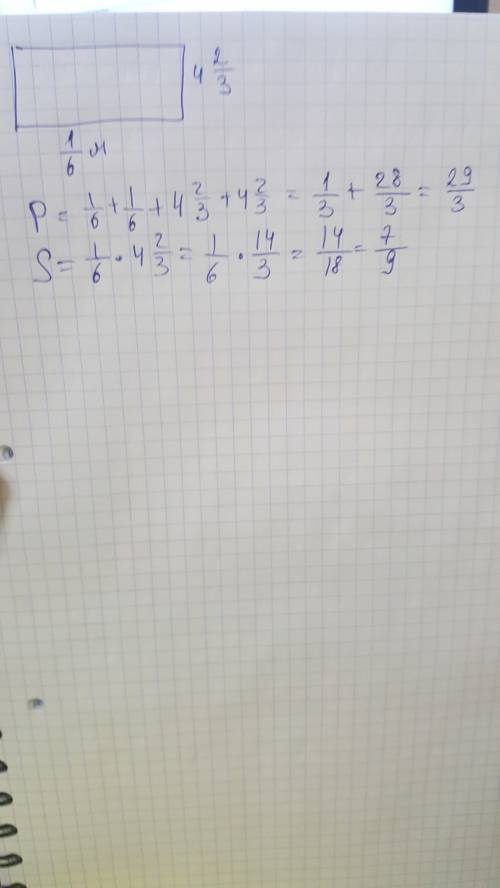 4 2/3
1/6 м
P = 1/6 + 1/6 + 4 2/3 + 4 2/3 = 1/3 + 28/3 = 29/3
S = 1/6 · 4 2/3 = 1/6 · 14/3 = 14/18 = 7/9